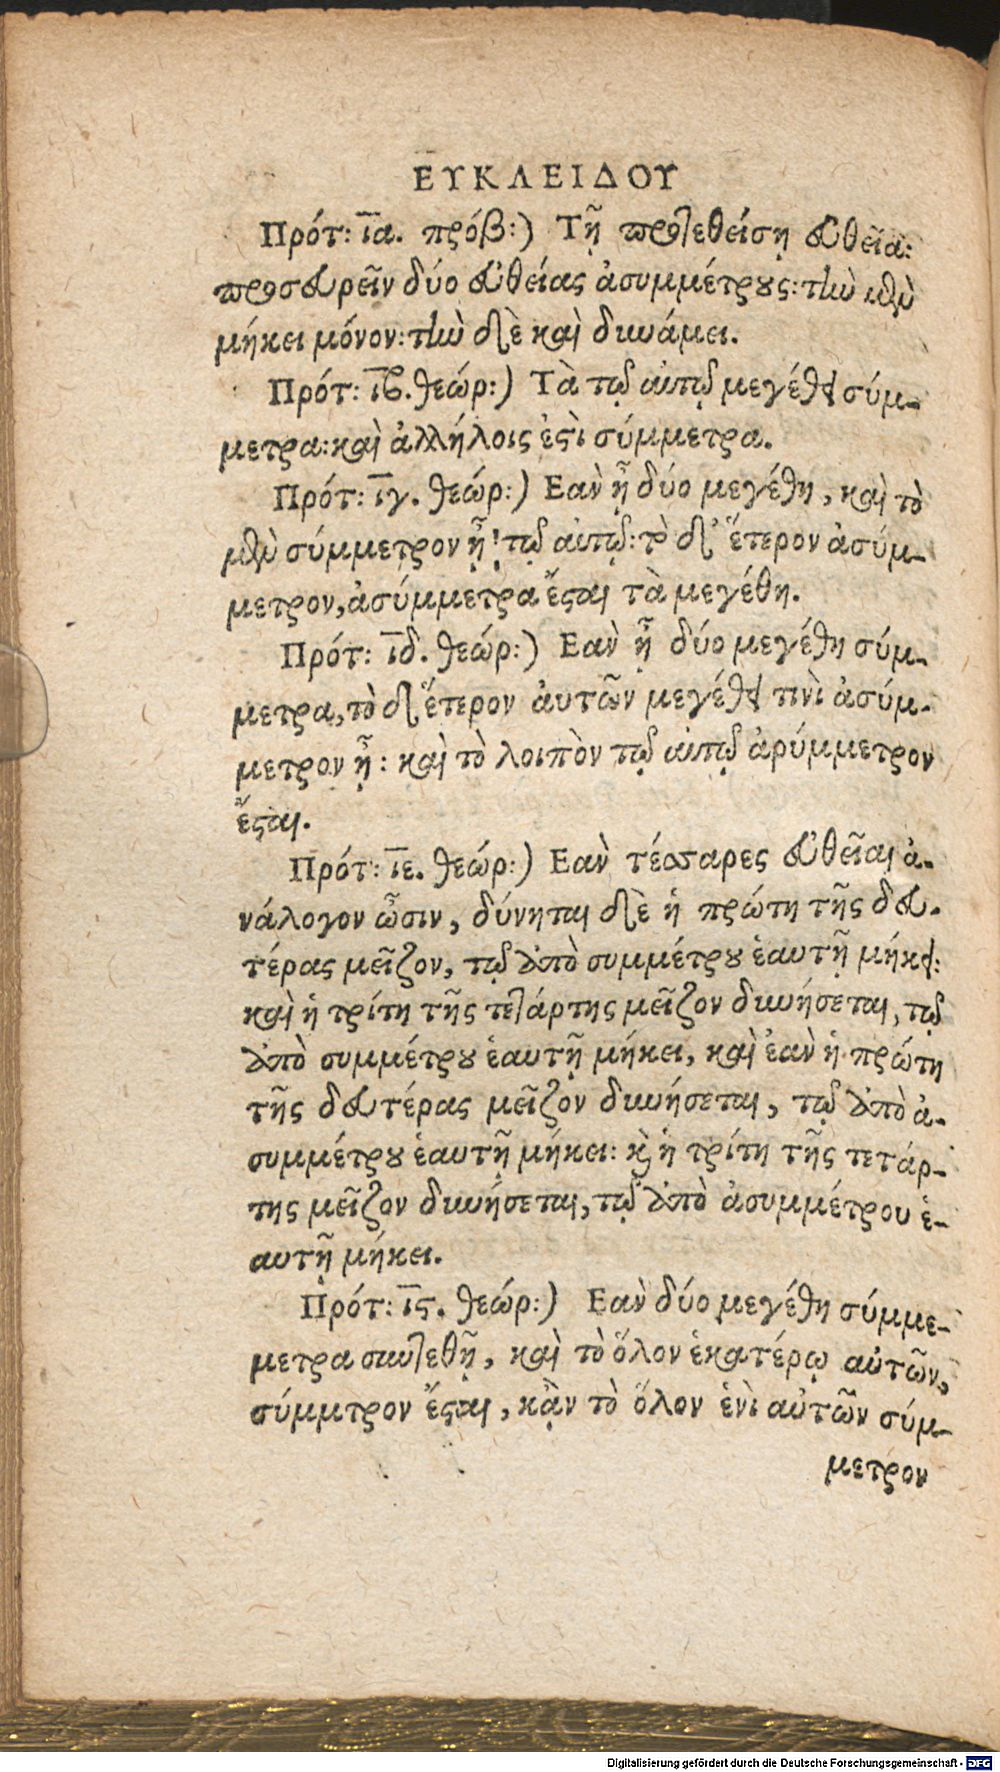 ΕΥΚΛΕΙΔΟΥ
Πρότ: ια. πρόβ:) Τῇ προτεθείσῃ εὐθεῖα:
προσευρεῖν δύο εὐθείας ἀσυμμέτρους: τὴν μὲν
μήκει μόνον: τὴν δὲ καὶ δυνάμει.
Πρότ: ιβ. θεώρ:) Τὰ τῷ αὐτῷ μεγέθει σύμ-
μετρα: καὶ ἀλλήλοις ἐστὶ σύμμετρα.
Πρότ: ιγ. θεώρ:) Εαν ᾖ δύο μεγέθη, καὶ τὸ
μὲν σύμμετρον ᾖ! τῷ αὐτῷ: τὸ δ' ἕτερον ἀσύμ-
μετρον, ἀσύμμετρα ἔσται τὰ μεγέθη.
Πρότ: ιδ. θεώρ:) Εαν ᾖ δύο μεγέθη σύμ-
μετρα, τὸ δ' ἕτερον ἀυτῶν μεγέθει τινὶ ἀσύμ-
μετρον ᾖ: καὶ τὸ λοιπὸν τῷ αὐτῷ ἀρύμμετρον
ἔσται.
Πρότ: ιε. θεώρ:) Εαν τέσσαρες εὐθεῖαι ἀ-
νάλογον ὦσιν, δύνηται δὲ ἡ πρώτη τῆς δευ-
τέρας μεῖζον, τῷ ἀπὸ συμμέτρου ἑαυτῇ μήκει:
καὶ ἡ τρίτη τῆς τετάρτης μεῖζον δυνήσεται, τῷ
ἀπὸ συμμέτρου ἑαυτῇ μήκει, καὶ ἐὰν ἡ πρώτη
τῆς δευτέρας μεῖζον δυνήσεται, τῷ ἀπὸ ἀ-
συμμέτρου ἑαυτῇ μήκει: καὶ ἡ τρίτη τῆς τετάρ-
της μεῖζον δυνήσεται, τῷ ἀπὸ ἀσυμμέτρου ἑ-
αυτῇ μήκει.
Πρότ: ις. θεώρ:) Εαν δύο μεγέθη σύμμε-
μετρα συντεθῇ, καὶ τὸ ὅλον ἑκατέρῳ αὐτῶν,
σύμμτρον ἔσται, κᾂν τὸ ὅλον ἑνὶ αὐτῶν σύμ-
μετρον
Digitalisierung gefördert durch die Deutsche Forschungsgemeinschaft - DFG